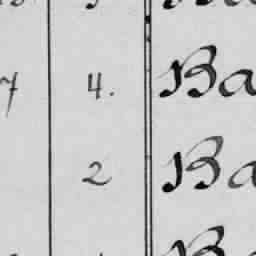 7 4. Ba
2 Ba
Ba